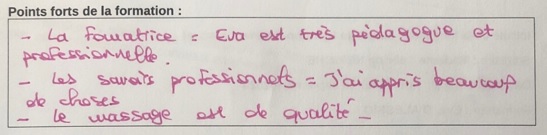 Points forts de la formation :
- La formatrice = Eva est très pédagogue et
professionnelle.
- Les savoirs professionnels = J'ai appris beaucoup
de choses
- le massage est de qualité -